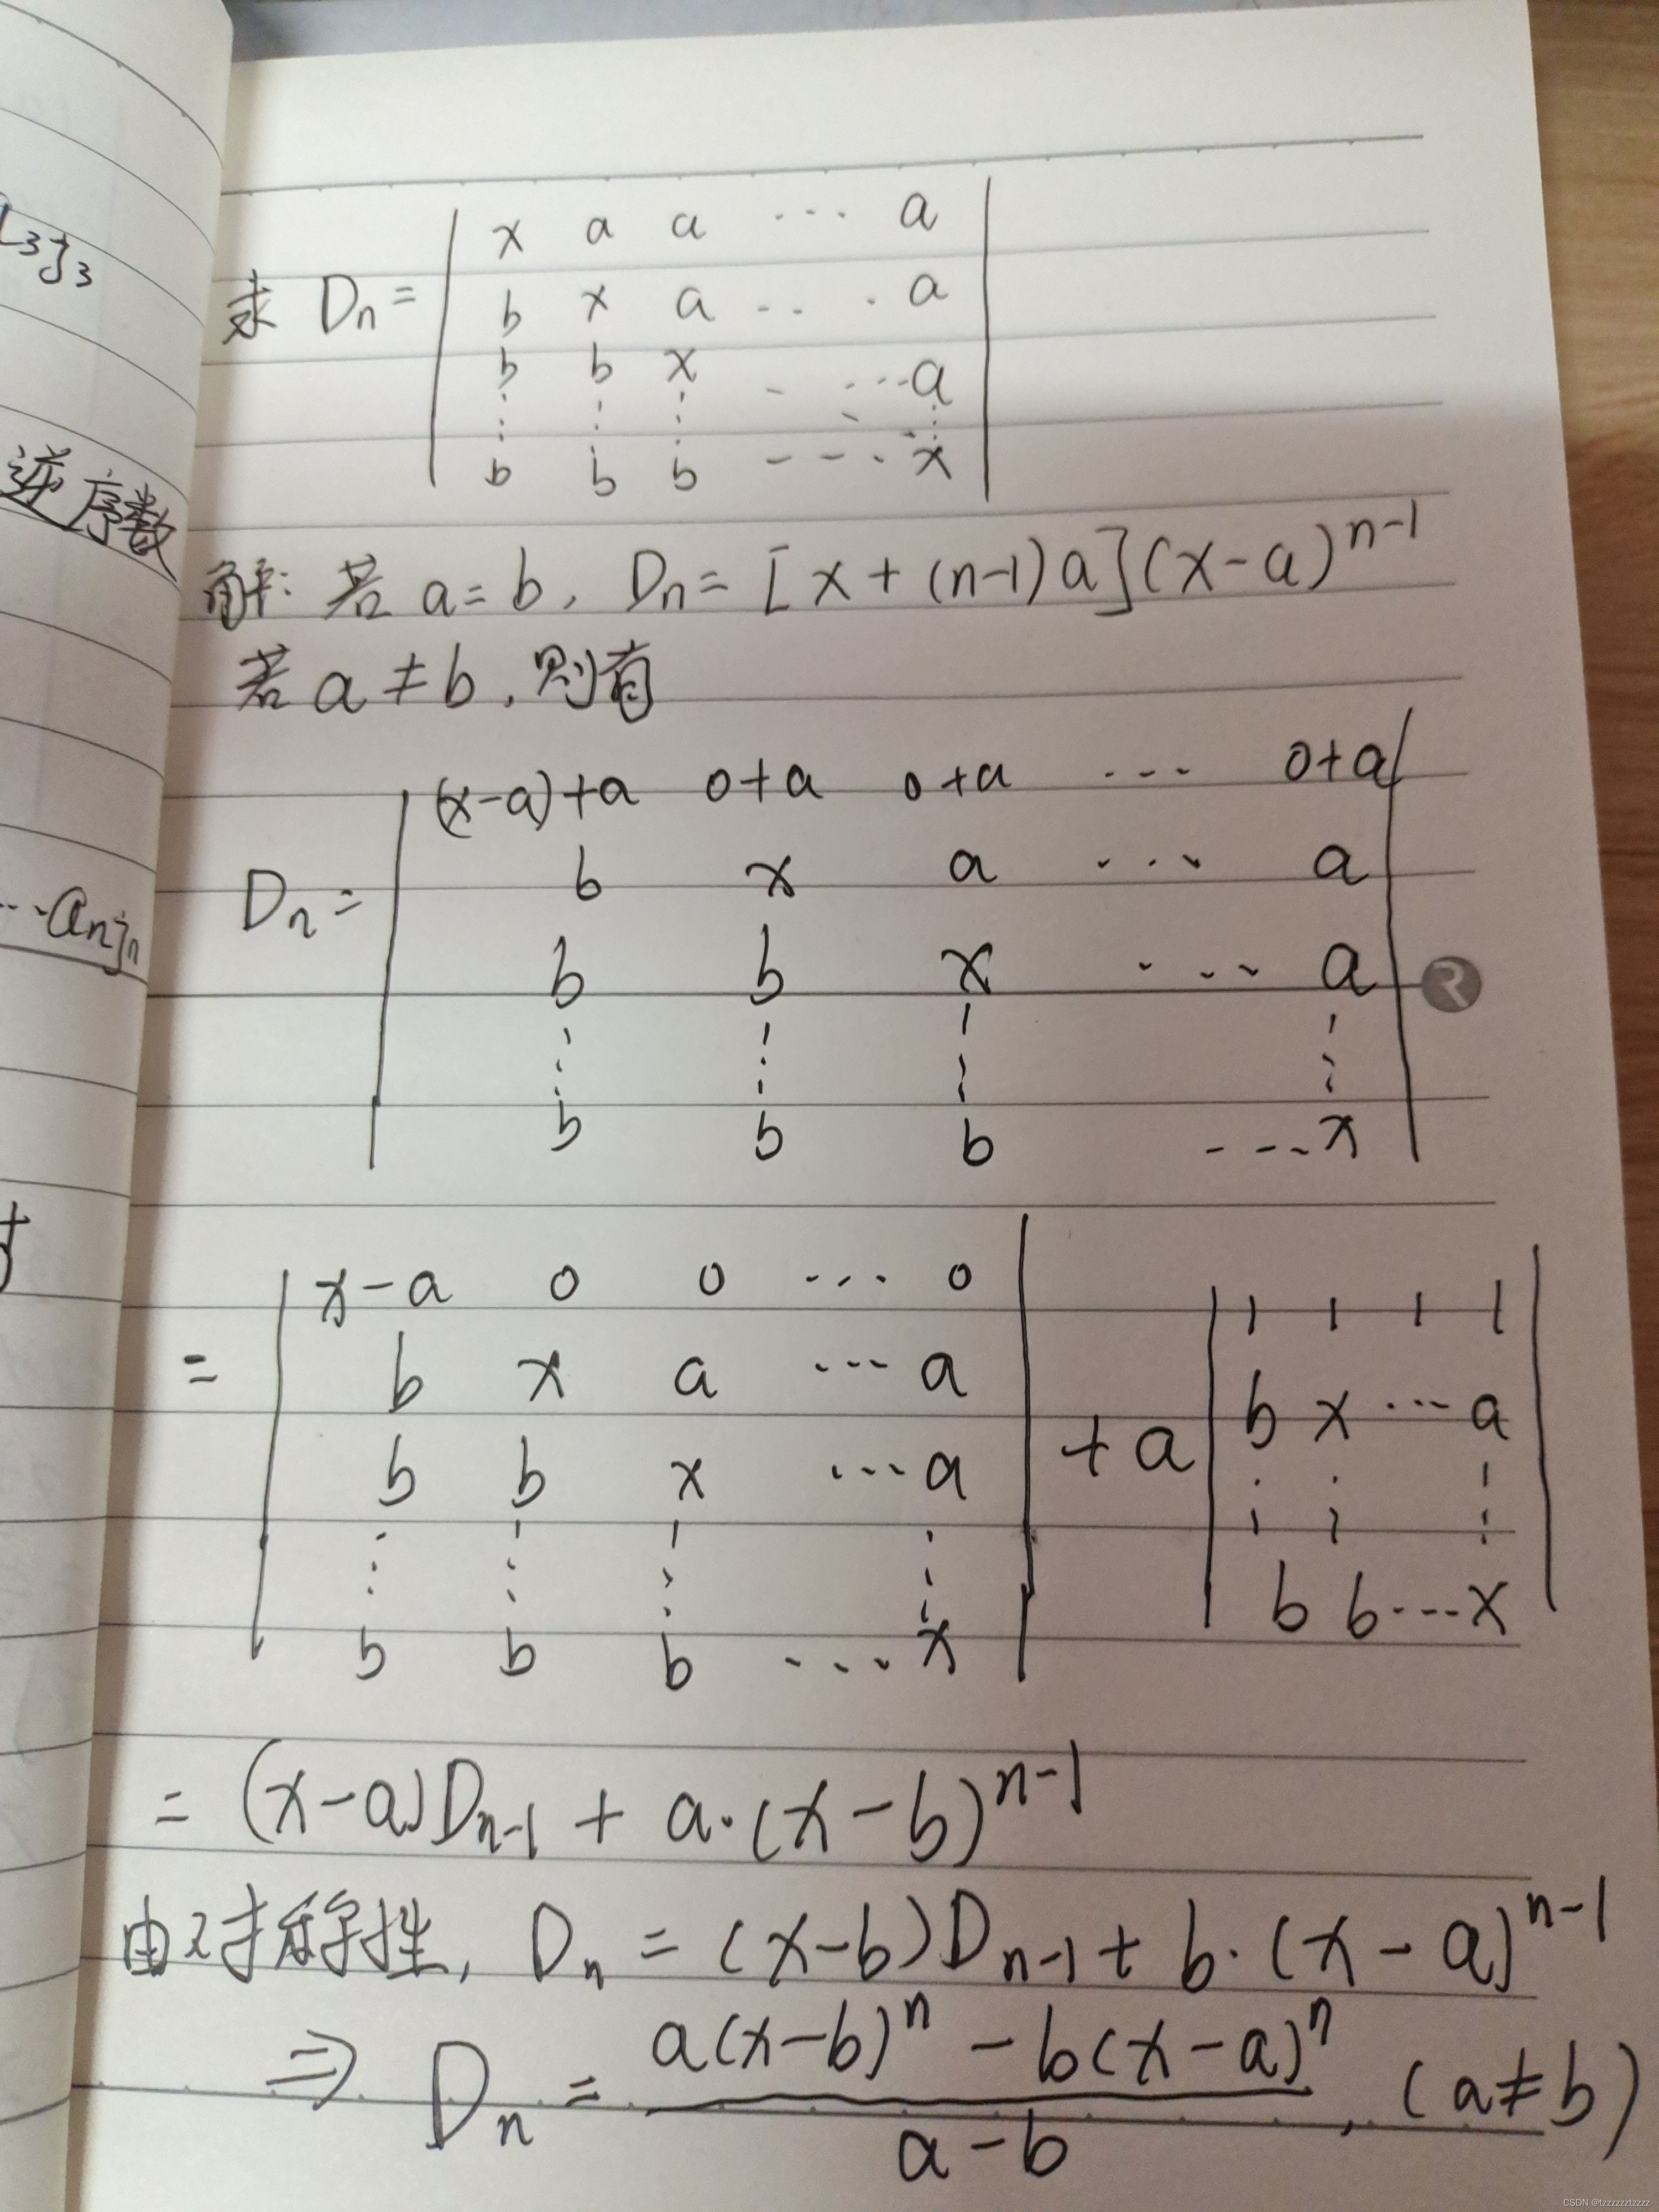 L3j3
逆序数
···anjn
求 Dn = | x a a ··· a |
| b x a ··· a |
| b b x ··· a |
| ⋮ ⋮ ⋮ ⋮ |
| b b b ··· x |
解: 若 a = b, Dn = [x + (n-1)a](x-a)^{n-1}
若 a ≠ b, 则有
Dn = | (x-a)+a 0+a 0+a ··· 0+a |
| b x a ··· a |
| b b x ··· a |
| ⋮ ⋮ ⋮ ⋮ |
| b b b ··· x |
= | x-a 0 0 ··· 0 | + a | 1 1 1 1 |
| b x a ··· a | | b x ··· a |
| b b x ··· a | | ⋮ ⋮ ⋮ |
| ⋮ ⋮ ⋮ ⋮ |
| b b b ··· x | | b b ··· x |
= (x-a)Dn-1 + a·(x-b)^{n-1}
由对称性, Dn = (x-b)Dn-1 + b·(x-a)^{n-1}
⇒ Dn = \frac{a(x-b)^n - b(x-a)^n}{a-b}, (a≠b)
CSDN @tzzzzzztzzzz